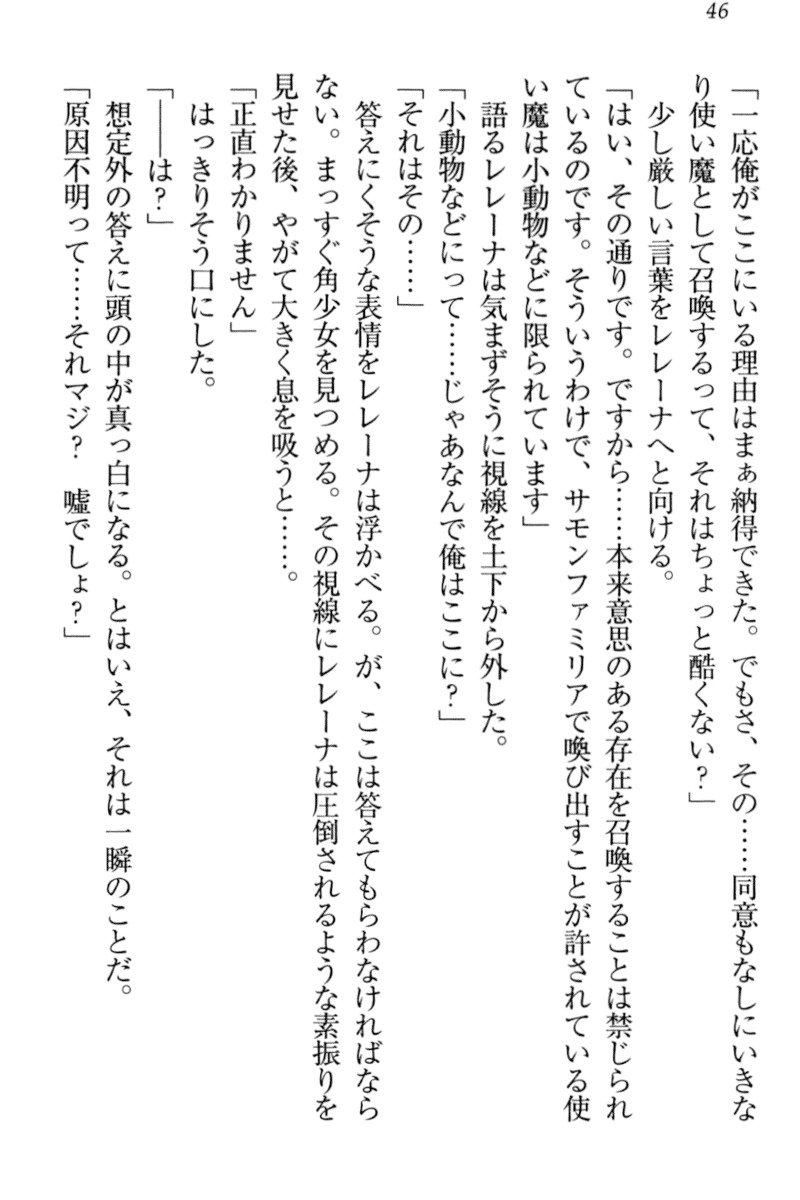 46
「一応俺がここにいる理由はまぁ納得できた。でもさ、その……同意もなしにいきな
り使い魔として召喚するって、それはちょっと酷くない？」
少し厳しい言葉をレレーナへと向ける。
「はい、その通りです。ですから……本来意思のある存在を召喚することは禁じられ
ているのです。そういうわけで、サモンファミリアで喚び出すことが許されている使
い魔は小動物などに限られています」
語るレレーナは気まずそうに視線を土下から外した。
「小動物などにって……じゃあなんで俺はここに？」
「それはその……」
答えにくそうな表情をレレーナは浮かべる。が、ここは答えてもらわなければなら
ない。まっすぐ角少女を見つめる。その視線にレレーナは圧倒されるような素振りを
見せた後、やがて大きく息を吸うと……。
「正直わかりません」
はっきりそう口にした。
「――は？」
想定外の答えに頭の中が真っ白になる。とはいえ、それは一瞬のことだ。
「原因不明って……それマジ？　嘘でしょ？」